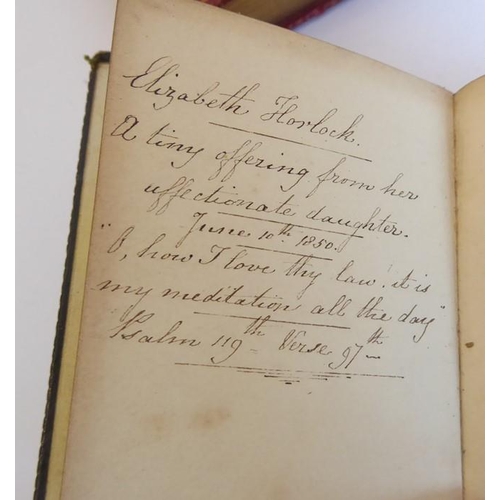 Elizabeth Horlock.
A tiny offering from her
affectionate daughter.
June 10th 1850.
"O, how I love thy law. it is
my meditation all the day"
Psalm 119th Verse 97th